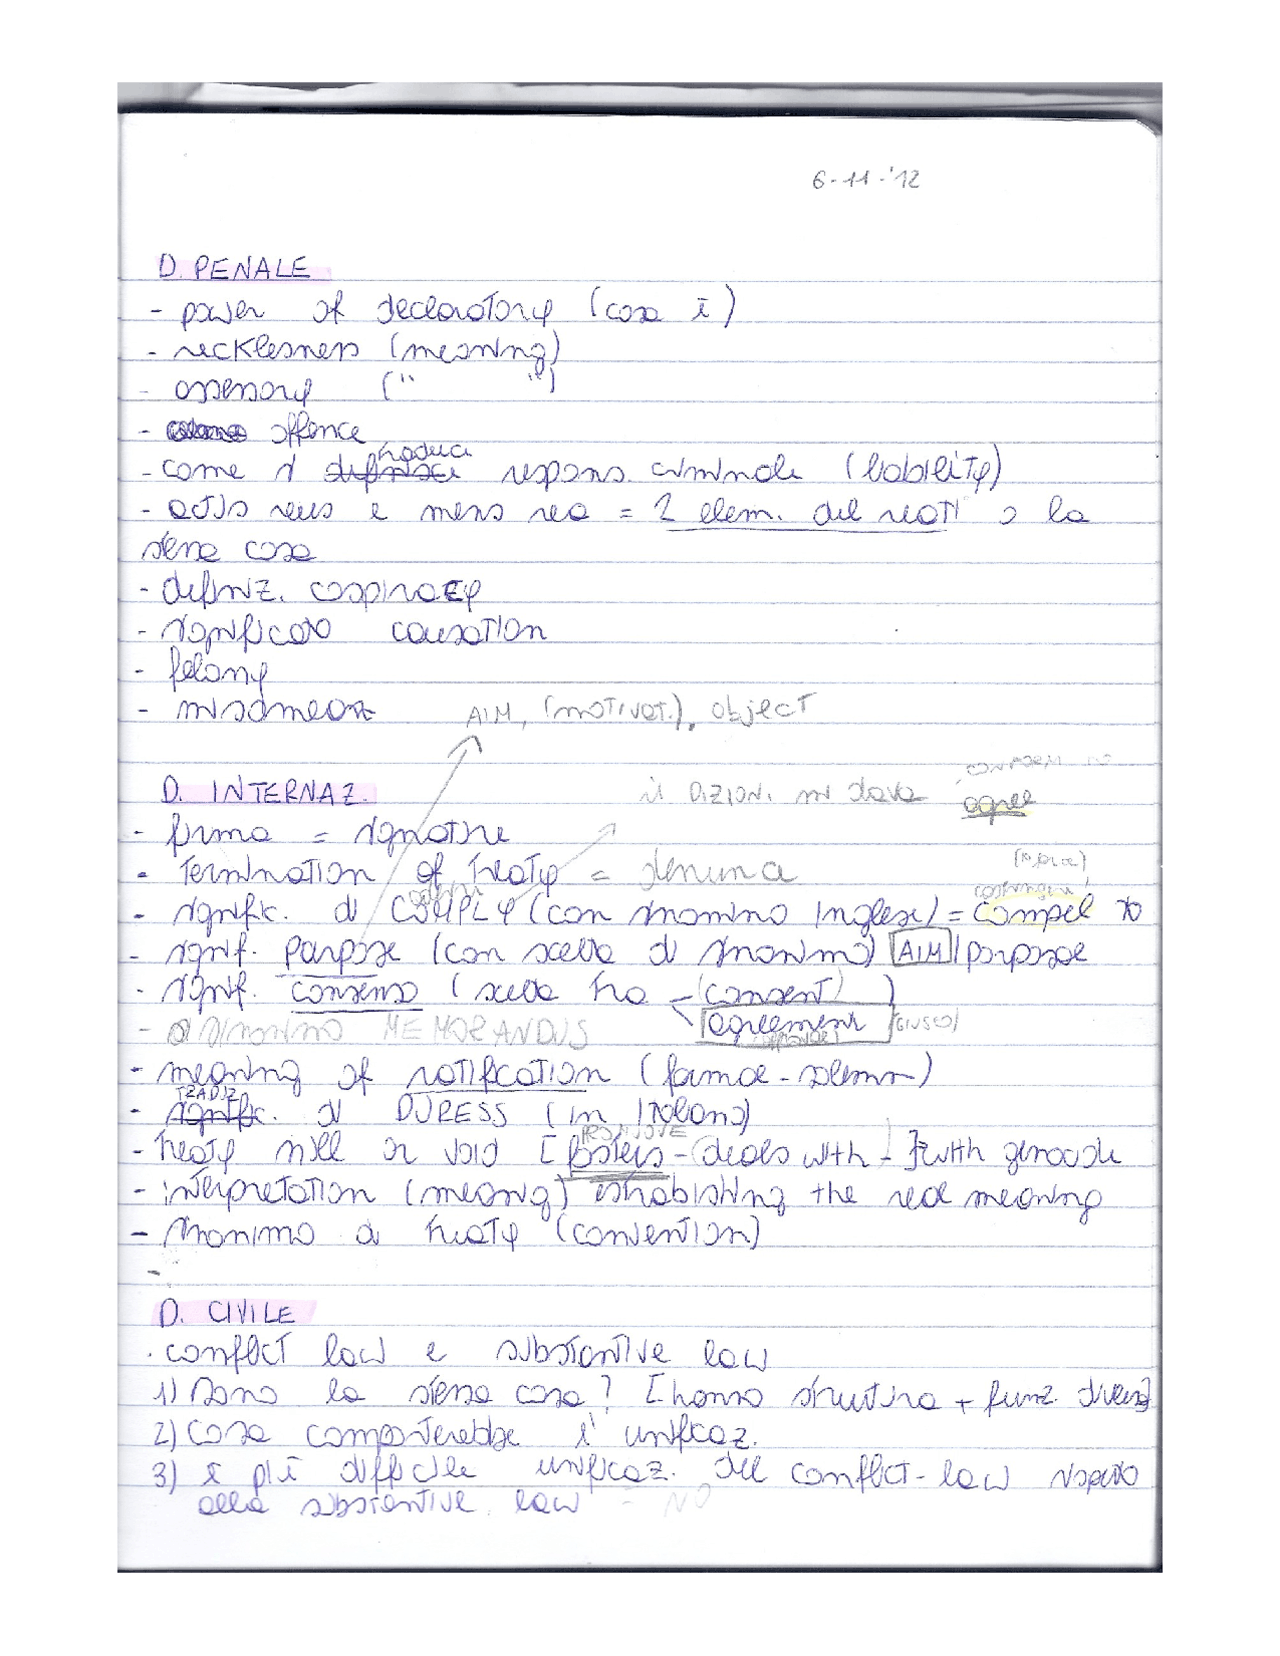 6-11-'12
D. PENALE
- power of declaratory (cosa è)
- recklesness (meaning)
- assessory (" ")
- offence
traduci
- come si definisci respons. criminale (liability)
- actus reus e mens rea = 2 elem. del reati o la
stessa cosa
- definiz. cospiracy
- significato causation
- felony
- misdmeanr
AIM, (motivat.), object
CONFORM TO
D. INTERNAZ.
il DIZION. mi dava agree
- firma = signature
- termination of treaty = denuncia
costringere
- signific. di COMPLY (con sinonimo inglese) = compel to
- signif. purpose (con scelta di sinonimo) AIM / purpose
- signif. consenso (scelta tra - (consent) )
agreement (GIUSTO)
- sinonimo MEMORANDUS
- meaning of ratification (formal-solemn)
TRADUZ
- signific. di DURESS (in italiano)
PROMUOVE
- treaty null or void [fosters - deals with - ] with genocide
- interpretation (meaning) establishing the real meaning
- sinonimo di treaty (convention)
-
D. CIVILE
. conflict law e substantive law
1) Sono la stessa cosa? [hanno struttura + funz. diversa]
2) Cosa comporterebbe l'unificaz.
3) è più difficile unificaz. del conflict-law rispetto
alla substantive law - NO